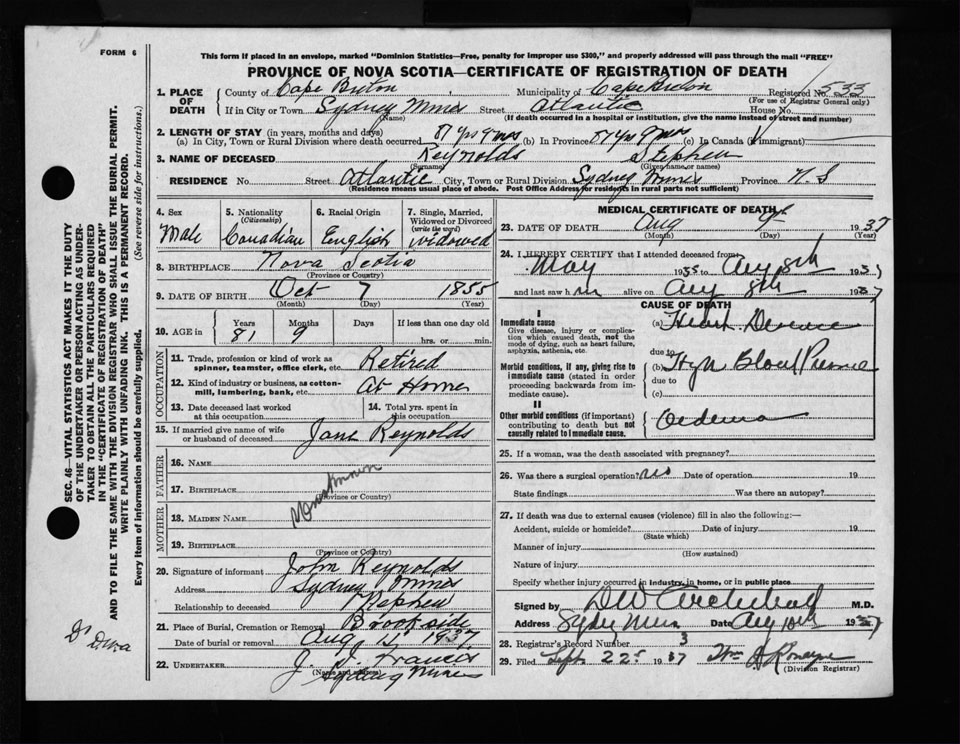 FORM 6
This form if placed in an envelope, marked "Dominion Statistics—Free, penalty for improper use $300," and properly addressed will pass through the mail "FREE"
PROVINCE OF NOVA SCOTIA—CERTIFICATE OF REGISTRATION OF DEATH
SEC. 46—VITAL STATISTICS ACT MAKES IT THE DUTY
OF THE UNDERTAKER OR PERSON ACTING AS UNDER-
TAKER TO OBTAIN ALL THE PARTICULARS REQUIRED
IN THE "CERTIFICATE OF REGISTRATION OF DEATH"
AND TO FILE THE SAME WITH THE DIVISION REGISTRAR WHO SHALL ISSUE THE BURIAL PERMIT.
WRITE PLAINLY WITH UNFADING INK. THIS IS A PERMANENT RECORD.
Every item of information should be carefully supplied. (See reverse side for instructions.)
1. PLACE OF DEATH
County of Cape Breton Municipality of Cape Breton Registered No. 533
(For use of Registrar General only)
If in City or Town Sydney Mines Street Atlantic House No.
(Name) (If death occurred in a hospital or institution, give the name instead of street and number)
2. LENGTH OF STAY (in years, months and days)
(a) In City, Town or Rural Division where death occurred 81 yrs 9 mos (b) In Province 81 yrs 9 mos (c) In Canada (if immigrant)
3. NAME OF DECEASED Reynolds Stephen
(Surname) (Given name or names)
RESIDENCE No. Street Atlantic City, Town or Rural Division Sydney Mines Province N. S
(Residence means usual place of abode. Post Office Address for residents in rural parts not sufficient)
4. Sex Male
5. Nationality (Citizenship) Canadian
6. Racial Origin English
7. Single, Married, Widowed or Divorced (write the word) widowed
8. BIRTHPLACE Nova Scotia
(Province or Country)
9. DATE OF BIRTH Oct 7 1855
(Month) (Day) (Year)
10. AGE in Years 81 Months 9 Days If less than one day old hrs. or min.
OCCUPATION
11. Trade, profession or kind of work as spinner, teamster, office clerk, etc. Retired
12. Kind of industry or business, as cotton-mill, lumbering, bank, etc. At Home
13. Date deceased last worked at this occupation
14. Total yrs. spent in this occupation
15. If married give name of wife or husband of deceased Jane Reynolds
FATHER
16. NAME
17. BIRTHPLACE
(Province or Country)
Unknown
MOTHER
18. MAIDEN NAME
19. BIRTHPLACE
(Province or Country)
20. Signature of informant John Reynolds
Address Sydney Mines
Relationship to deceased Nephew
21. Place of Burial, Cremation or Removal Brookside
Date of burial or removal Aug 1937
22. UNDERTAKER J. J. Francis
(Name and address) Sydney Mines
MEDICAL CERTIFICATE OF DEATH
23. DATE OF DEATH Aug 1937
(Month) (Day) (Year)
24. I HEREBY CERTIFY that I attended deceased from
May 1935 to Aug 8th 1937
and last saw him alive on Aug 8th 1937
CAUSE OF DEATH
I
Immediate cause
Give disease, injury or complication which caused death, not the mode of dying, such as heart failure, asphyxia, asthenia, etc.
(a) Heart Disease
due to
Morbid conditions, if any, giving rise to immediate cause (stated in order proceeding backwards from immediate cause).
(b) High Blood Pressure
due to
(c)
II
Other morbid conditions (if important) contributing to death but not causally related to immediate cause.
Oedema
25. If a woman, was the death associated with pregnancy?
26. Was there a surgical operation? no Date of operation 19
State findings Was there an autopsy?
27. If death was due to external causes (violence) fill in also the following:—
Accident, suicide or homicide? Date of injury 19
(State which)
Manner of injury
(How sustained)
Nature of injury
Specify whether injury occurred in industry, in home, or in public place
Signed by D W Archibald M.D.
Address Sydney Mines Date Aug 10th 1937
28. Registrar's Record Number 3
29. Filed Sept 22 1937 Wm
(Division Registrar)